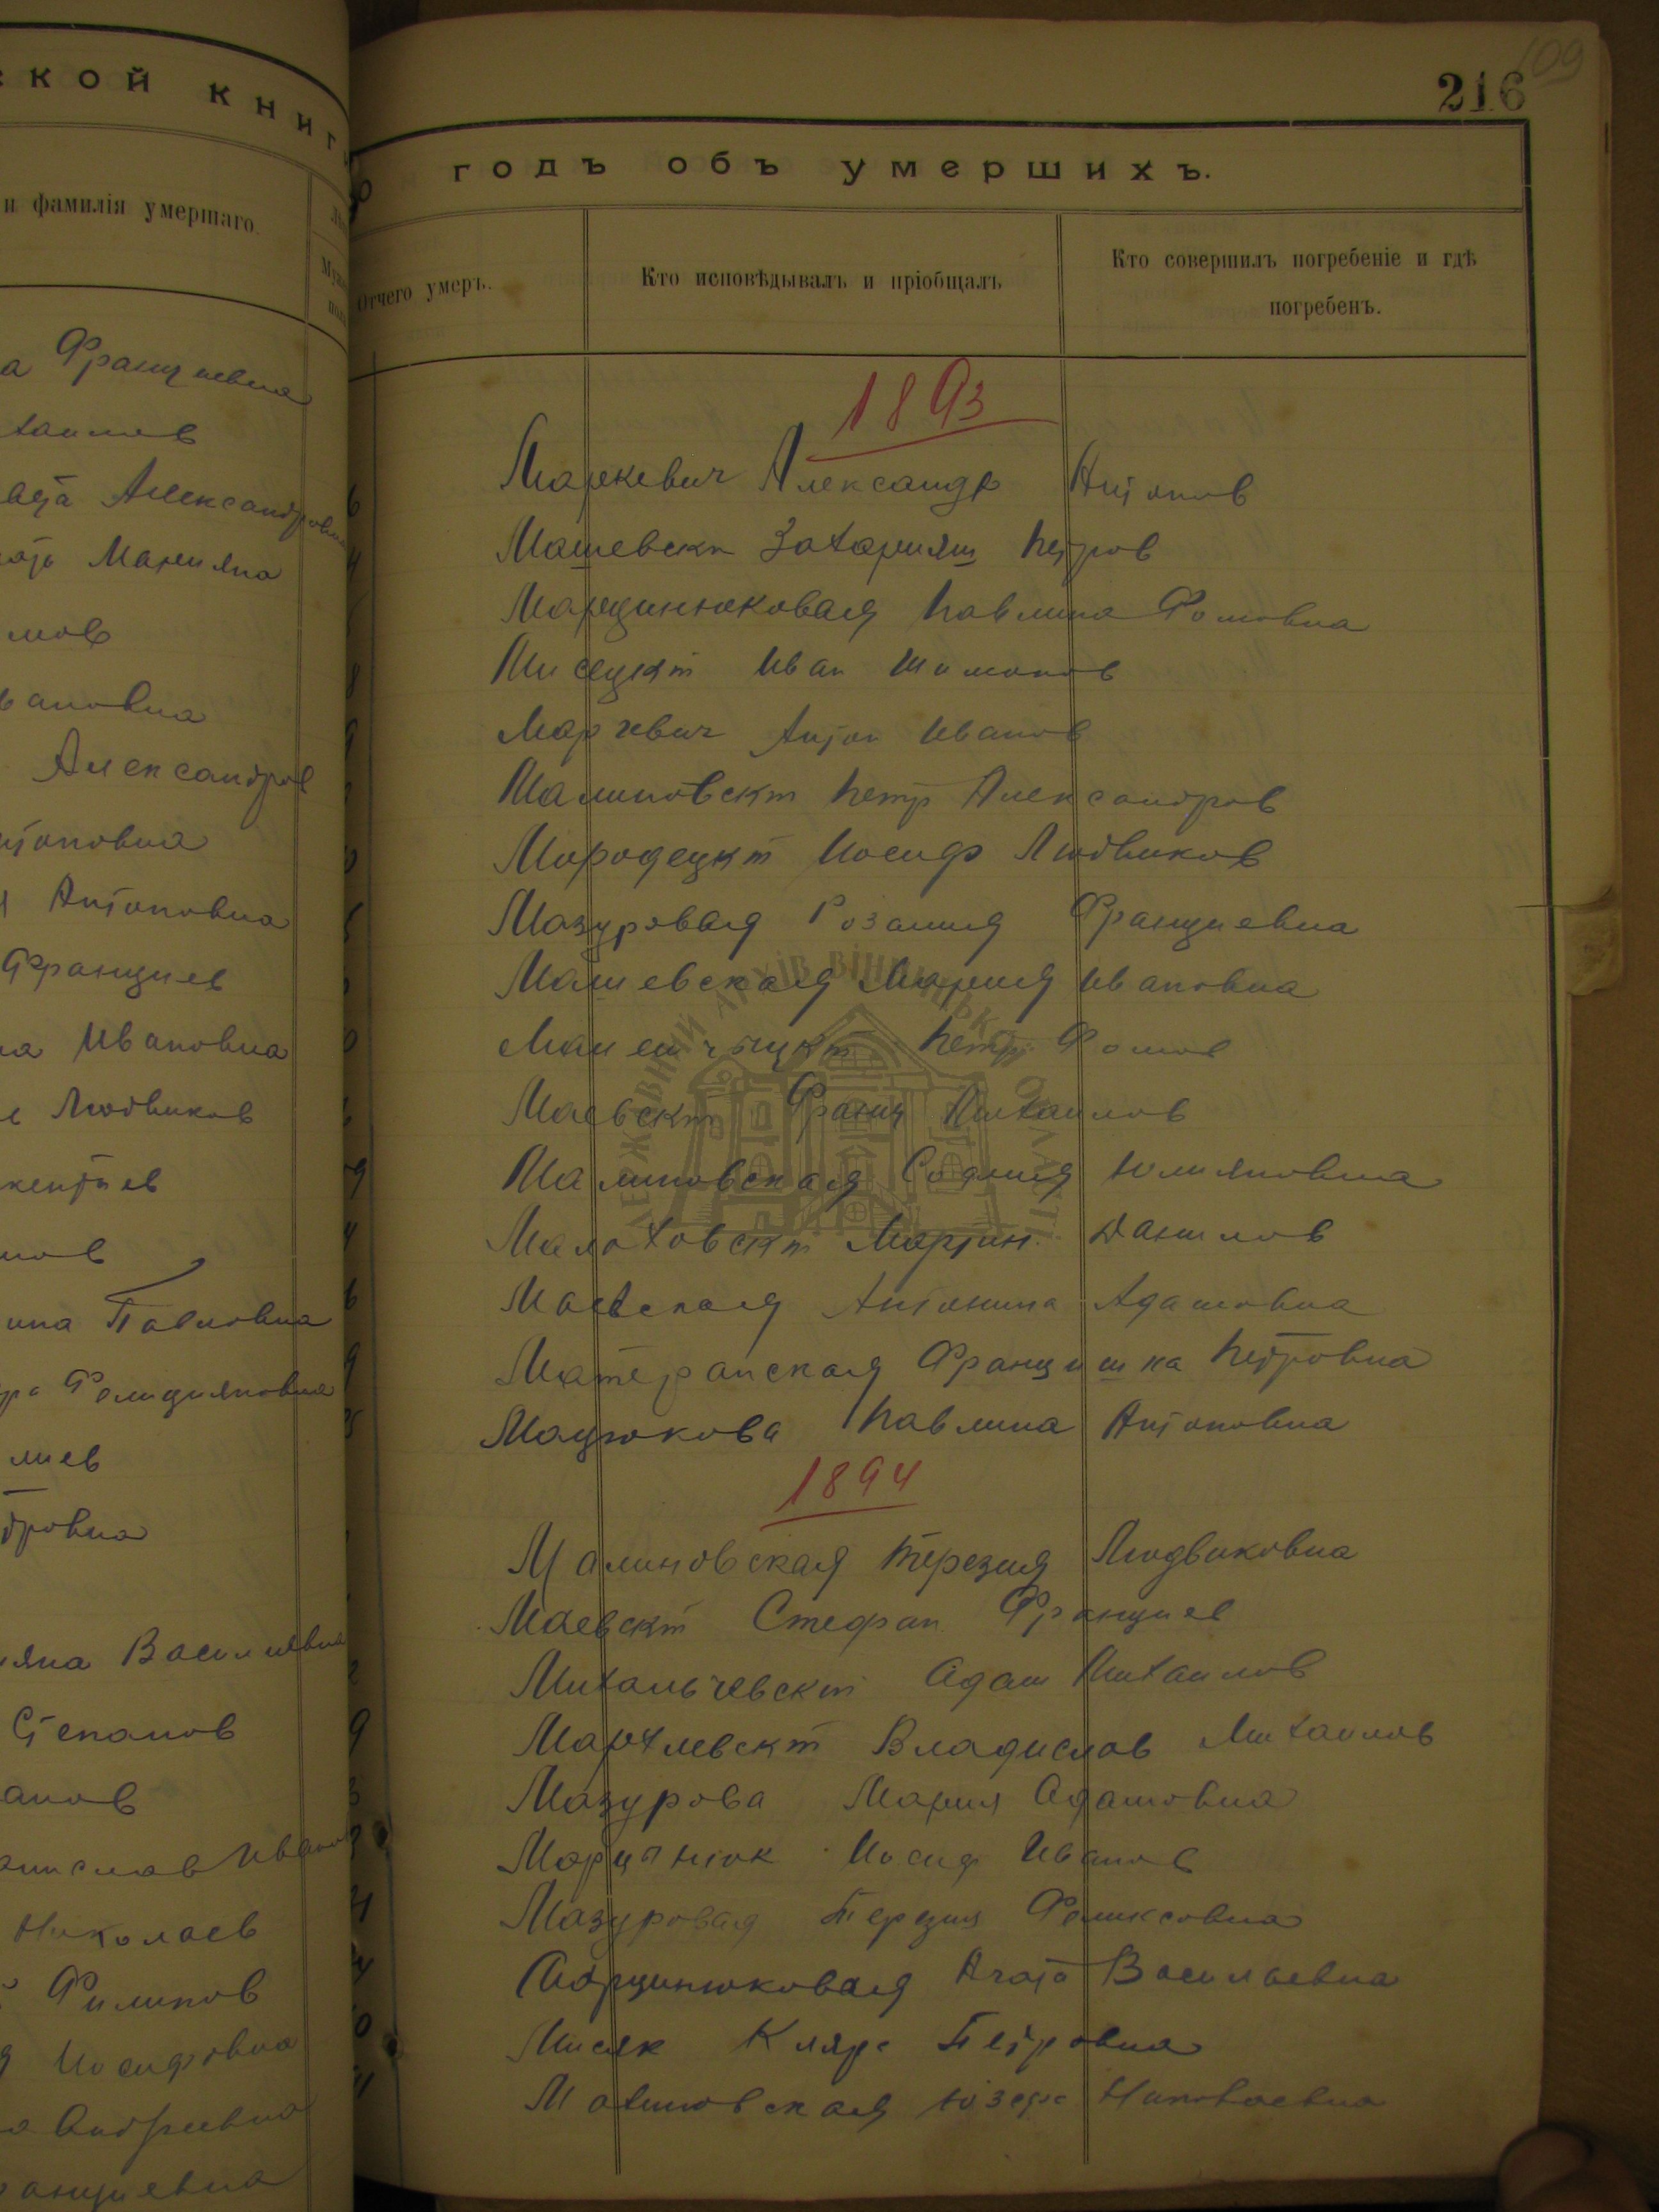 ской книг
и фамилія умершаго.
а Францевна
Александровна
Марияна
мов
Александров
Антоновна
Францев
Ивановна
Людвиков
Павловна
Фелицияновна
лиев
Степанов
Николаев
Филипов
Иосифовна
109
216
годъ объ умершихъ.
Отчего умеръ.
Кто исповѣдывалъ и пріобщалъ
Кто совершилъ погребеніе и гдѣ
погребенъ.
1893
Маркевич Александр Антонов
Машевски Захарияш Петров
Марцинюковая Павлина Фомовна
Иван Шимонов
Марчевич Антон Иванов
Малиновский Петр Александров
Мародецкий Иосиф Людвиков
Мазуровая Розалия Францевна
Машевская Мария Ивановна
Петр Фомов
Маевский Франц Михаилов
Малиновская Софлия Юлияновна
Малаховский Мартин Данилов
Маевская Антонина Адамовна
Матеранская Францишка Петровна
Мацюкова Павлина Антоновна
1894
Малиновская Терезия Людвиковна
Маевский Стефан Францев
Михальчевский Адам Михаилов
Мархлевский Владислав Михаилов
Мазурова Мария Адамовна
Марцынюк Иосиф Иванов
Мазуровая Терезия Феликсовна
Марцинюковая Агата Васильевна
Мисяк Кляра Петровна
Юзефа